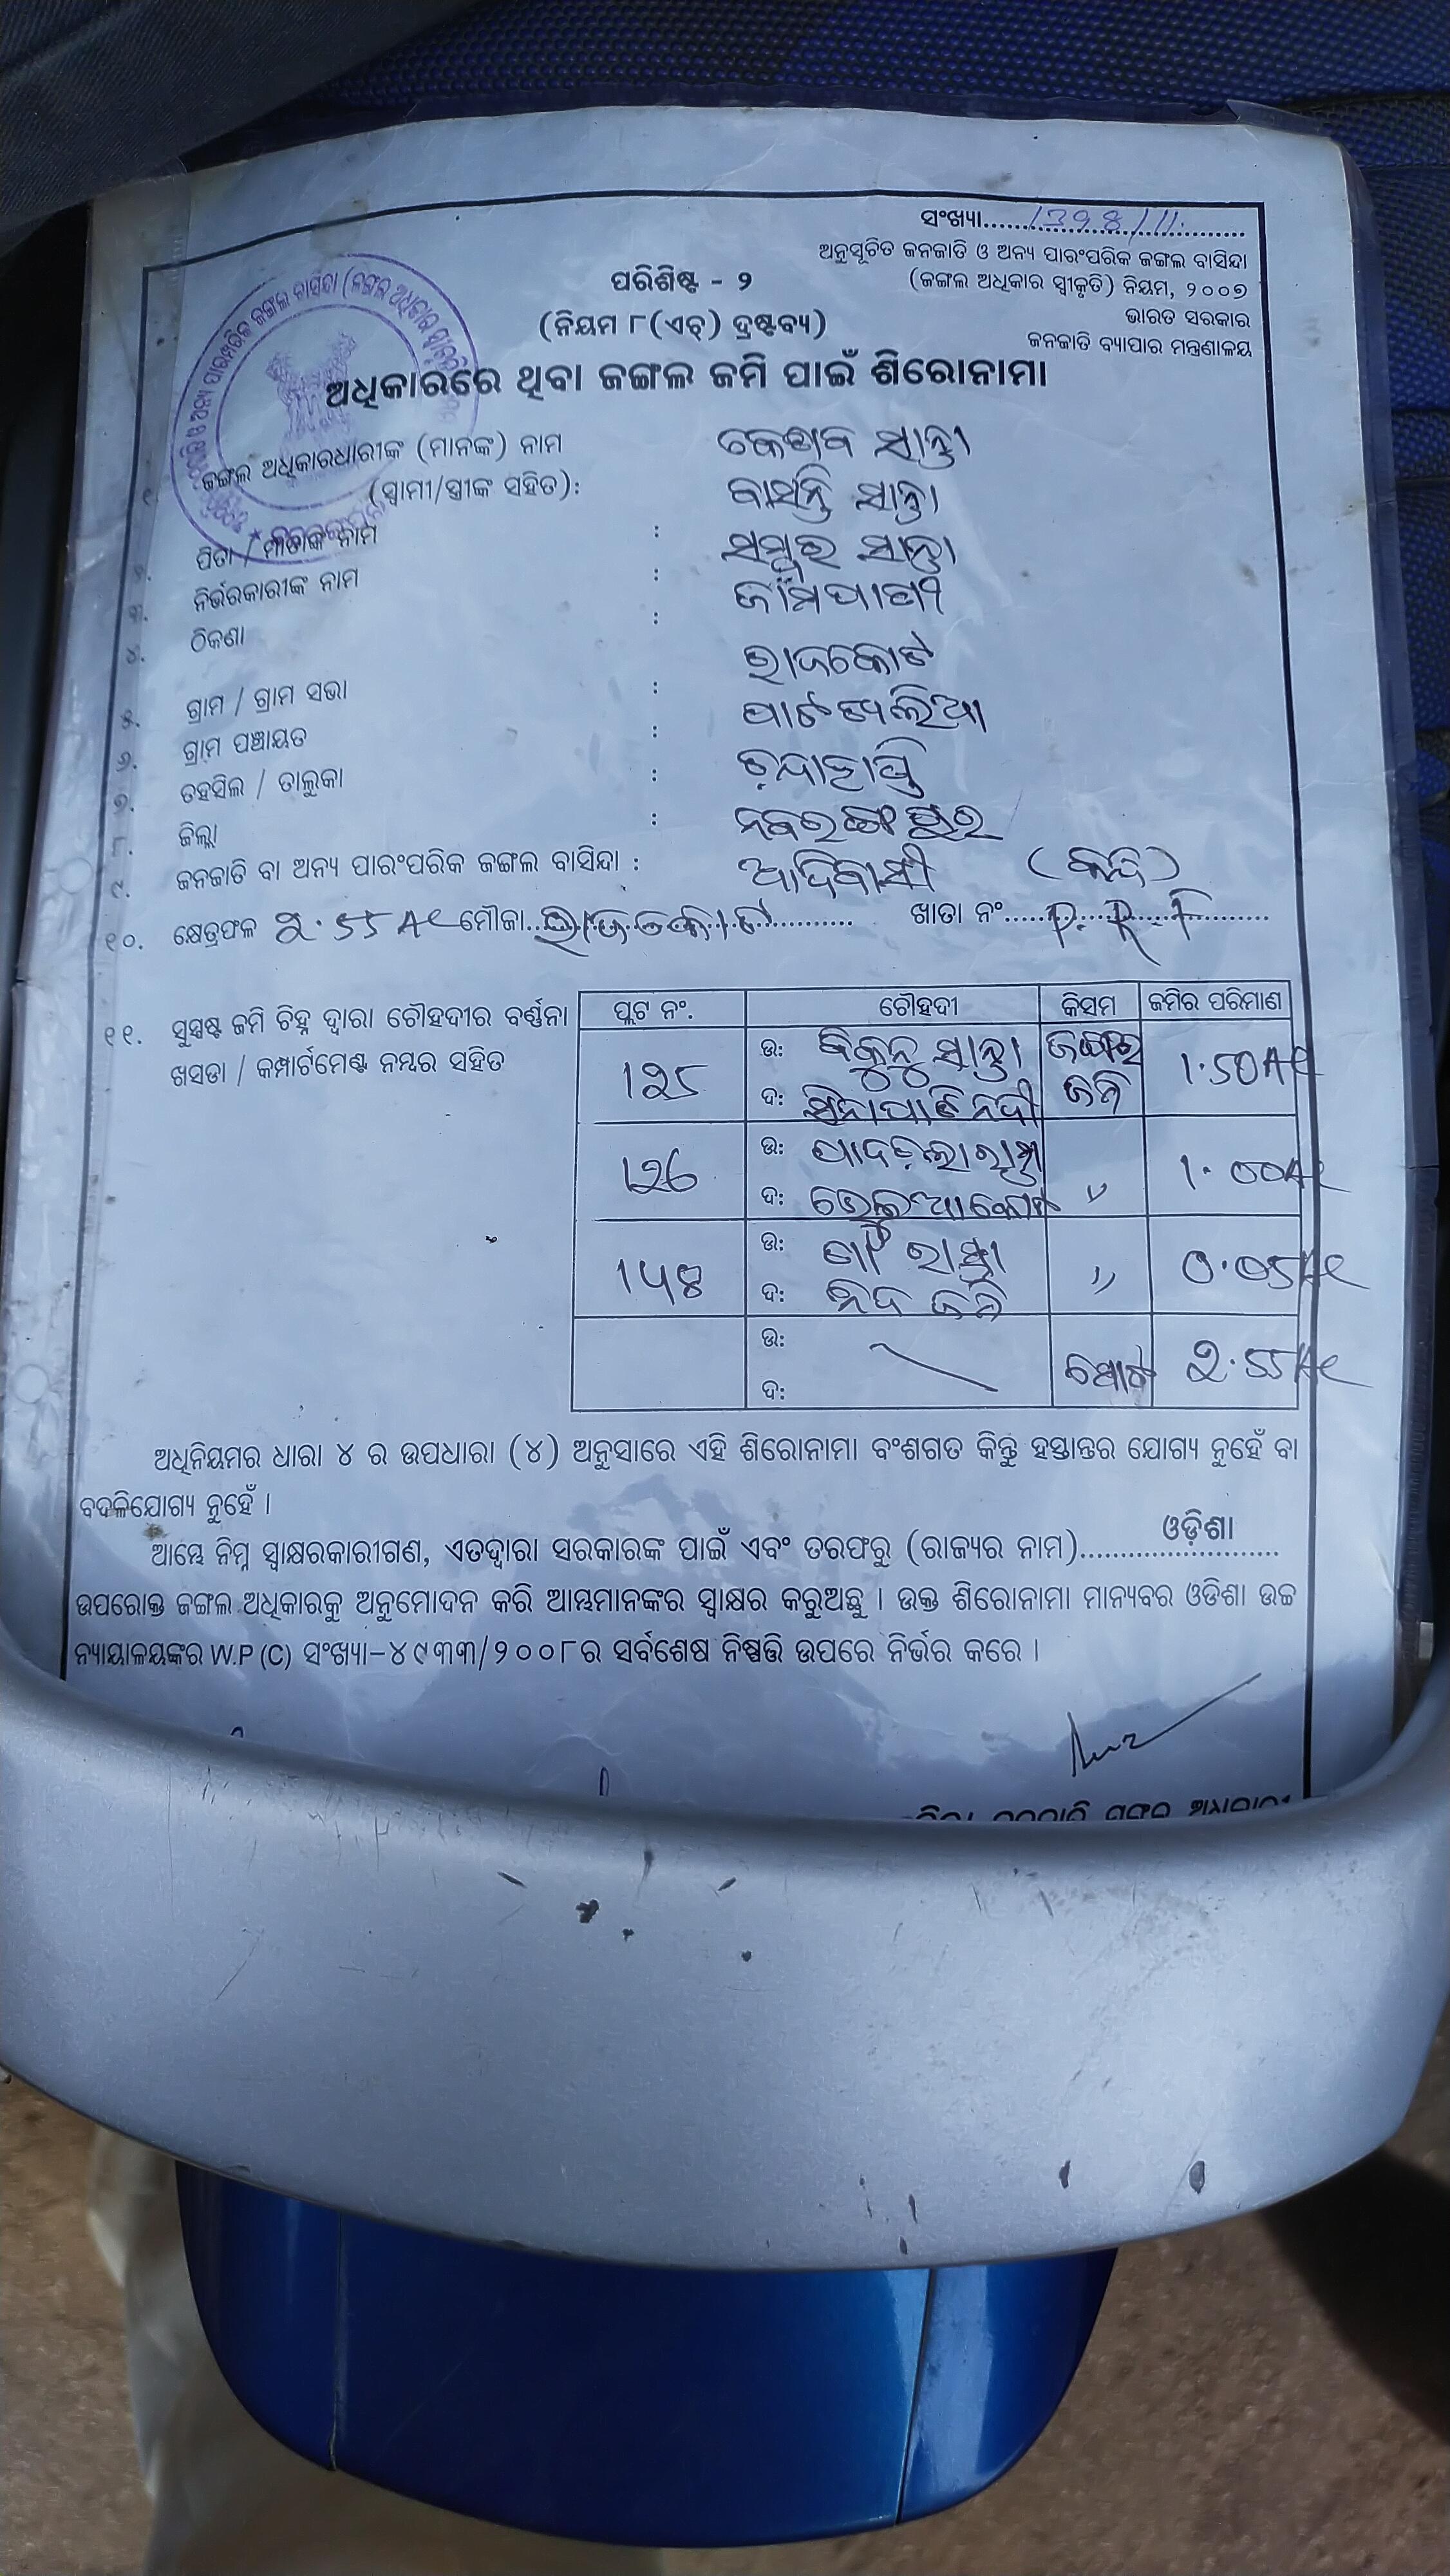 ସଂଖ୍ୟା......1398/11.
ଅନୁସୂଚିତ ଜନଜାତି ଓ ଅନ୍ୟ ପାରଂପରିକ ଜଙ୍ଗଲ ବାସିନ୍ଦା
(ଜଙ୍ଗଲ ଅଧିକାର ସ୍ୱୀକୃତି) ନିୟମ, ୨୦୦୭
ଭାରତ ସରକାର
ଜନଜାତି ବ୍ୟାପାର ମନ୍ତ୍ରଣାଳୟ
ପରିଶିଷ୍ଟ - ୨
(ନିୟମ ୮(ଏଚ୍) ଦ୍ରଷ୍ଟବ୍ୟ)
ଅଧିକାରରେ ଥିବା ଜଙ୍ଗଲ ଜମି ପାଇଁ ଶିରୋନାମା
୧. ଜଙ୍ଗଲ ଅଧିକାରଧାରୀଙ୍କ (ମାନଙ୍କ) ନାମ କେଶବ ସାନ୍ତା
(ସ୍ୱାମୀ/ସ୍ତ୍ରୀଙ୍କ ସହିତ): ବାସନ୍ତି ସାନ୍ତା
୨. ପିତା / ମାତାଙ୍କ ନାମ : ସାନ୍ତା
୩. ନିର୍ଭରକାରୀଙ୍କ ନାମ :
୪. ଠିକଣା :
୫. ଗ୍ରାମ / ଗ୍ରାମ ସଭା : ରାଜକୋଟ
୬. ଗ୍ରାମ ପଞ୍ଚାୟତ :
୭. ତହସିଲ / ତାଲୁକା : ଚନ୍ଦାହାଣ୍ଡି
୮. ଜିଲ୍ଲା : ନବରଙ୍ଗପୁର
୯. ଜନଜାତି ବା ଅନ୍ୟ ପାରଂପରିକ ଜଙ୍ଗଲ ବାସିନ୍ଦା : ଆଦିବାସୀ
୧୦. କ୍ଷେତ୍ରଫଳ ୨.55 Ac ମୌଜା..ରାଜକୋଟ.......... ଖାତା ନଂ.....P.R.F.......
୧୧. ସୁସ୍ପଷ୍ଟ ଜମି ଚିହ୍ନ ଦ୍ୱାରା ଚୌହଦୀର ବର୍ଣ୍ଣନା
ଖସଡା / କମ୍ପାର୍ଟମେଣ୍ଟ ନମ୍ବର ସହିତ
ପ୍ଲଟ ନଂ. ଚୌହଦୀ କିସମ ଜମିର ପରିମାଣ
ଉ: ସାନ୍ତା ଜଙ୍ଗଲ 1.50Ac
ଦ: ନଦୀ ଜମି
126 ଉ: ରାସ୍ତା 1.00Ac
ଦ: 〃
ଉ: ଗାଁ ରାସ୍ତା 〃 0.05Ac
ଦ: ନିଜ ଜମି
ଉ: ମୋଟ ୨.55Ac
ଦ:
ଅଧିନିୟମର ଧାରା ୪ ର ଉପଧାରା (୪) ଅନୁସାରେ ଏହି ଶିରୋନାମା ବଂଶଗତ କିନ୍ତୁ ହସ୍ତାନ୍ତର ଯୋଗ୍ୟ ନୁହେଁ ବା
ବଦଳିଯୋଗ୍ୟ ନୁହେଁ ।
ଆମ୍ଭେ ନିମ୍ନ ସ୍ୱାକ୍ଷରକାରୀଗଣ, ଏତଦ୍ୱାରା ସରକାରଙ୍କ ପାଇଁ ଏବଂ ତରଫରୁ (ରାଜ୍ୟର ନାମ)......ଓଡ଼ିଶା......
ଉପରୋକ୍ତ ଜଙ୍ଗଲ ଅଧିକାରକୁ ଅନୁମୋଦନ କରି ଆମ୍ଭମାନଙ୍କର ସ୍ୱାକ୍ଷର କରୁଅଛୁ । ଉକ୍ତ ଶିରୋନାମା ମାନ୍ୟବର ଓଡିଶା ଉଚ୍ଚ
ନ୍ୟାୟାଳୟଙ୍କର W.P (C) ସଂଖ୍ୟା-୪୯୩୩/୨୦୦୮ର ସର୍ବଶେଷ ନିଷ୍ପତ୍ତି ଉପରେ ନିର୍ଭର କରେ ।